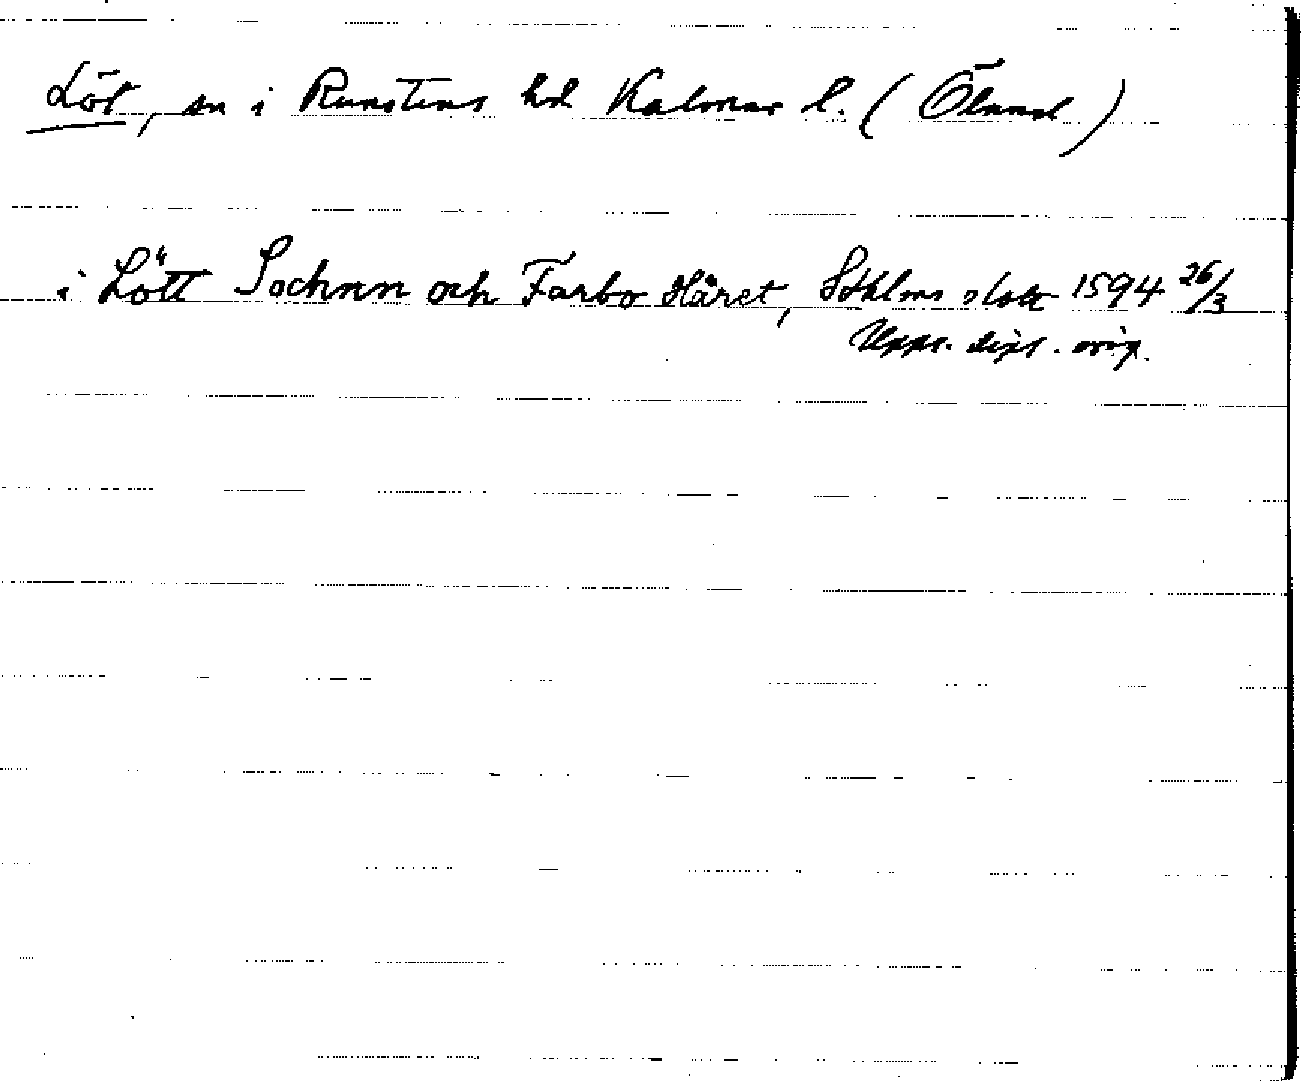 Löt, sn i Runstens hd Kalmar l. (Öland)
i Lött Sochnn och Farbo Häret, Sthlms slott 1594 26/3
Upps. dipl. orig.